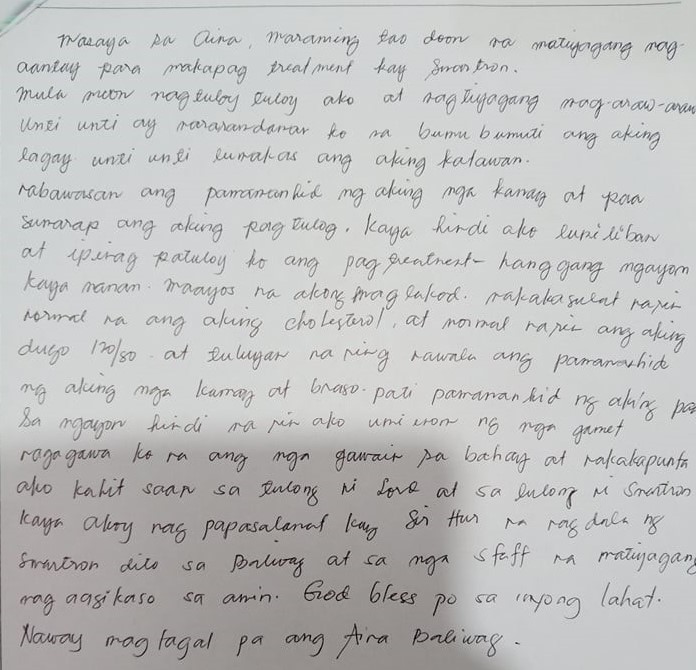 masaya sa Aina, maraming tao doon na matiyagang nag-
aantay para makapag treatment kay Smartron.
mula noon nagtuloy tuloy ako at nagtiyagang mag-araw-araw
Unti unti ay nararamdaman ko na bumubumuti ang aking
lagay unti unti lumakas ang aking katawan.
nabawasan ang pamamanhid ng aking mga kamay at paa
sumarap ang aking pagtulog. Kaya hindi ako lumiliban
at ipinag patuloy ko ang pag treatment hanggang ngayon
kaya naman. maayos na akong maglakad. nakakasulat narin
normal na ang aking cholesterol, at normal narin ang aking
dugo 120/80. at tuluyan na ring nawala ang pamamanhid
ng aking mga kamay at braso. pati pamamanhid ng aking paa
Sa ngayon hindi na rin ako umiinom ng mga gamot
nagagawa ko na ang mga gawain sa bahay at nakakapunta
ako kahit saan sa tulong ni Lord at sa tulong ni Smartron
kaya akoy nag papasalamat kay Sir Hur na nagdala ng
Smartron dito sa Baliwag at sa mga staff na matiyagang
nag aasikaso sa amin. God bless po sa inyong lahat.
Naway magtagal pa ang Aina Baliwag.